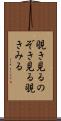 覗き見るの
ぞき見る覗
きみる